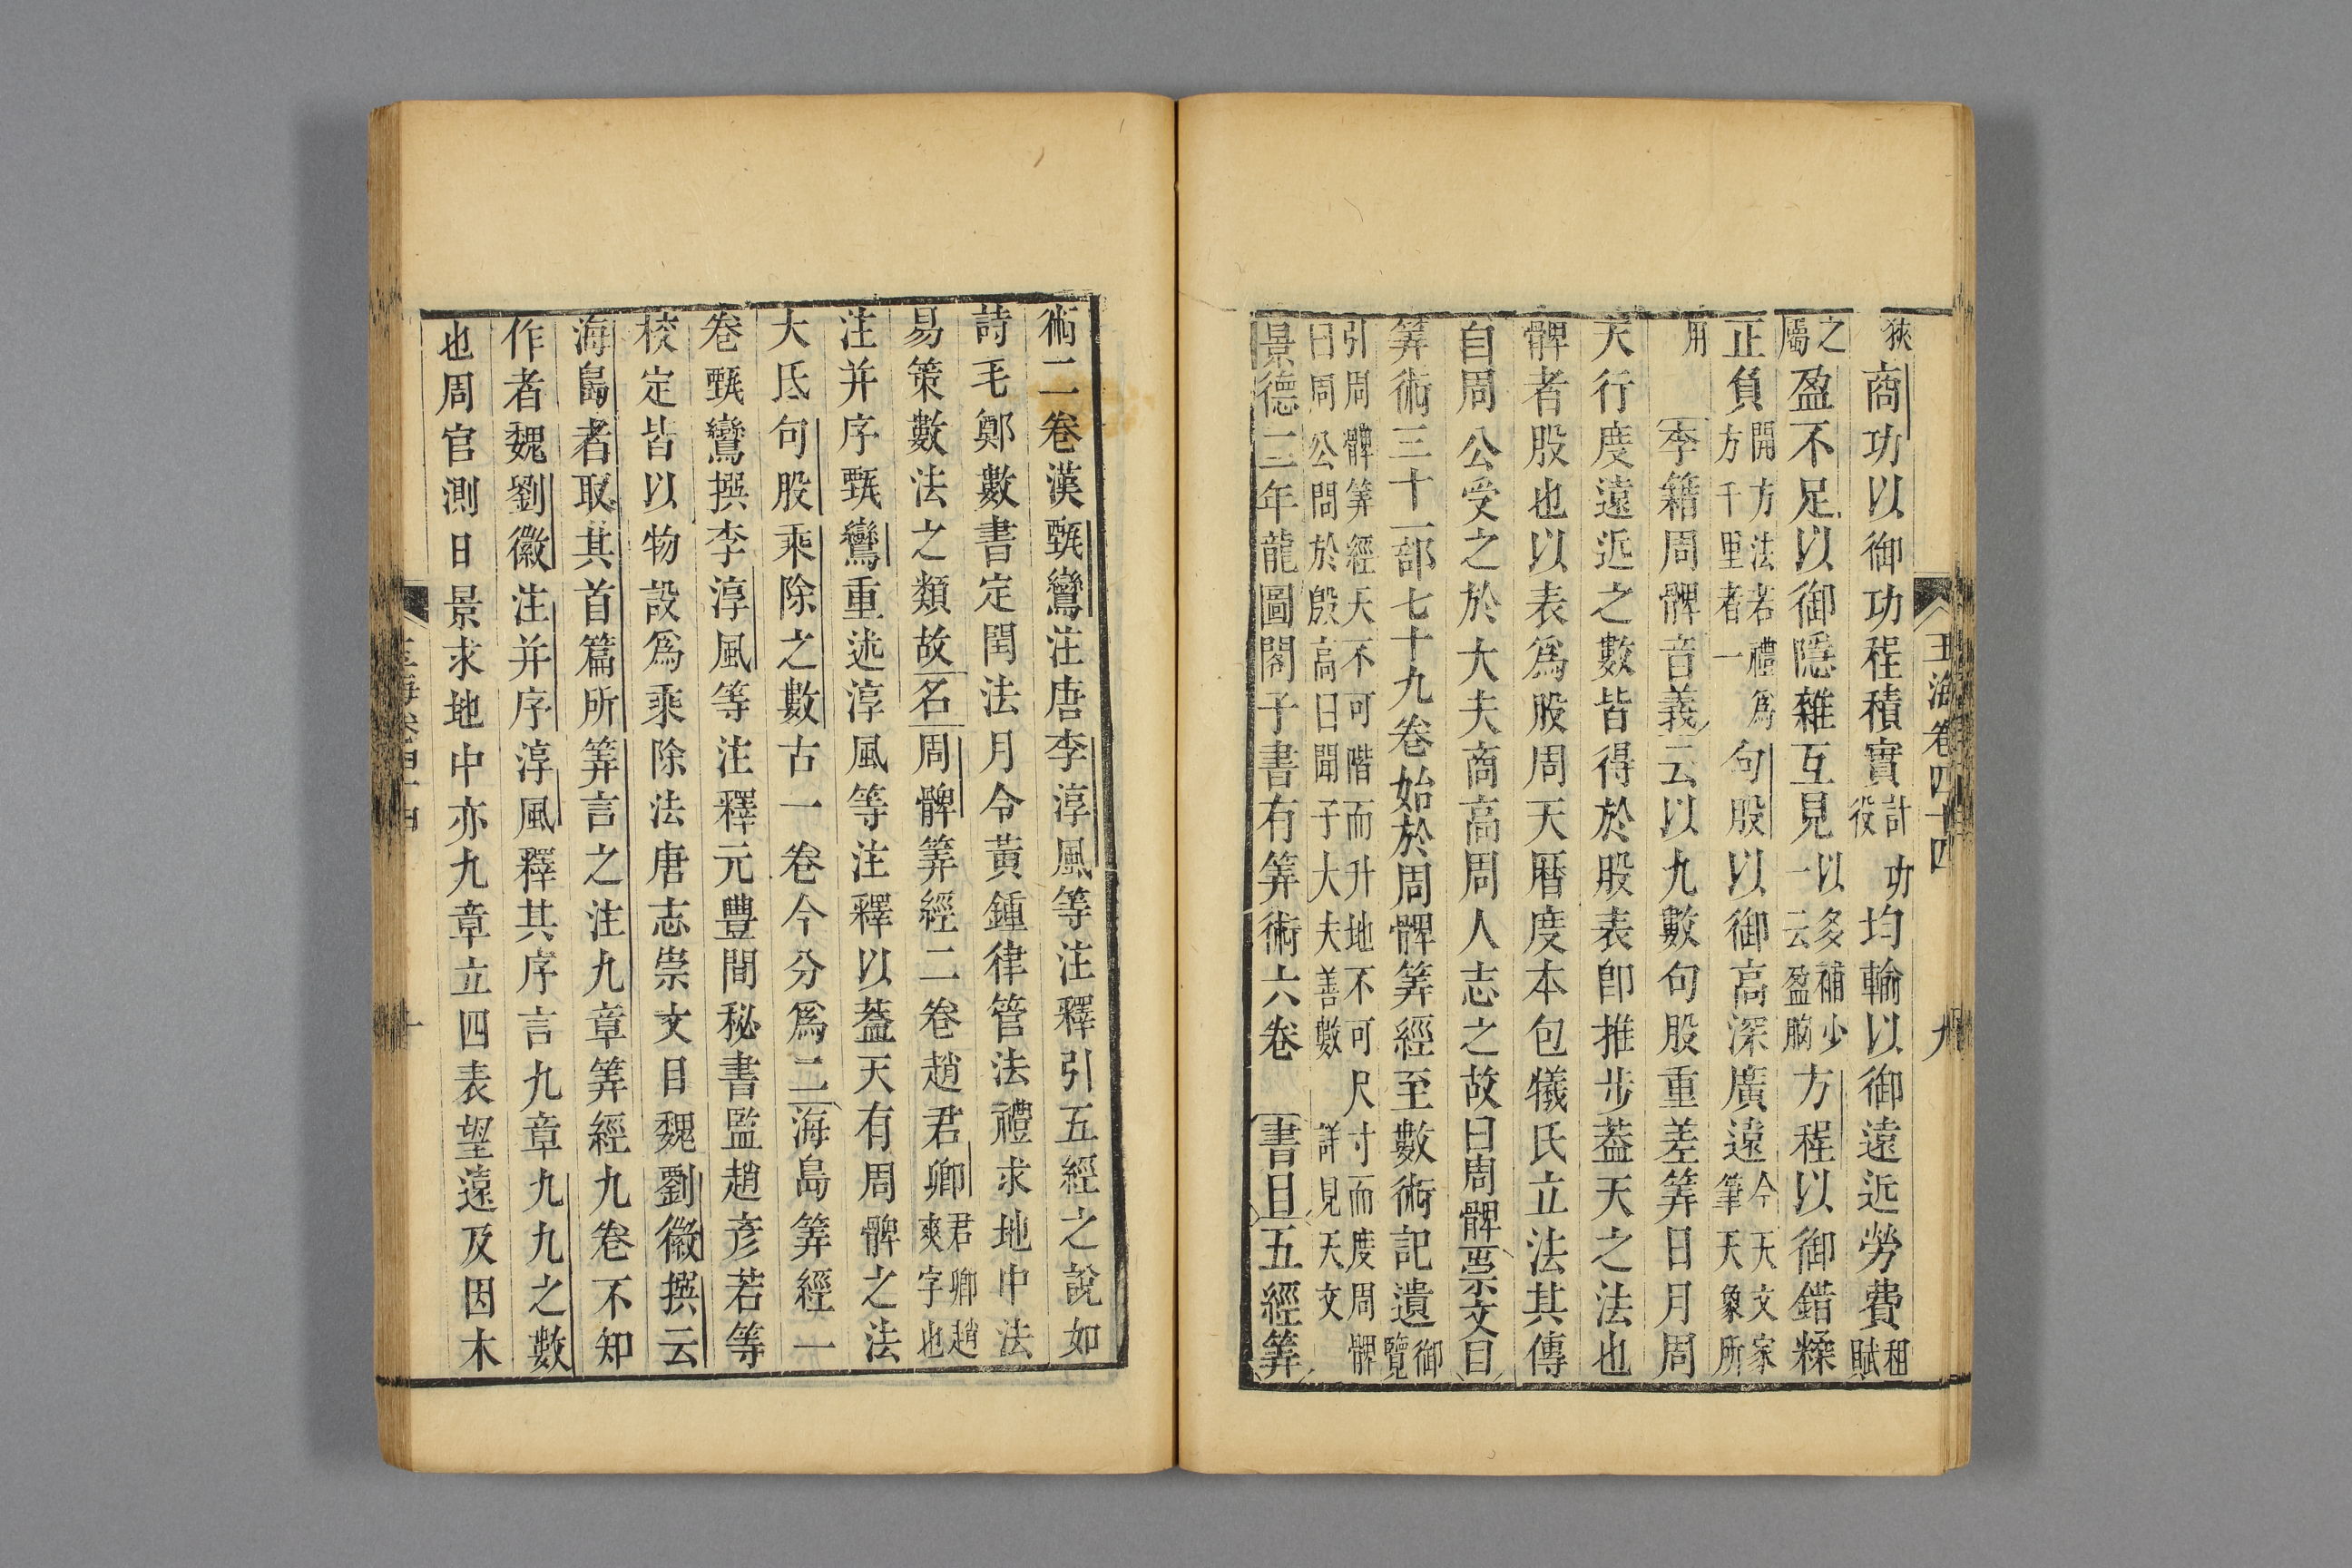 玉海卷四十四　九
狹商功以御功程積實計功役均輸以御遠近勞費租賦
之屬盈不足以御隱雜互見以多補少一云盈朒方程以御錯糅
正負開方法若禮爲方千里者一句股以御高深廣遠今天文家筆天象所
用李籍周髀音義云以九數句股重差筭日月周
天行度遠近之數皆得於股表卽推步葢天之法也
髀者股也以表爲股周天曆度本包犧氏立法其傳
自周公受之於大夫商高周人志之故曰周髀崇文目
筭術三十一部七十九卷始於周髀筭經至數術記遺御覽
引周髀筭經天不可階而升地不可尺寸而度周髀曰周公問於殷高曰聞子大夫善數詳見天文
景德二年龍圖閣子書有筭術六卷書目五經筭
術二卷漢甄鸞注唐李淳風等注釋引五經之說如
詩毛鄭數書定閏法月令黃鍾律管法禮求地中法
易策數法之類故名周髀筭經二卷趙君卿君卿趙爽字也
注并序甄鸞重述淳風等注釋以葢天有周髀之法
大氐句股乘除之數古一卷今分爲二海島筭經一
卷甄鸞撰李淳風等注釋元豐間秘書監趙彥若等
校定皆以物設爲乘除法唐志崇文目魏劉徽撰云
海島者取其首篇所筭言之注九章筭經九卷不知
作者魏劉徽注并序淳風釋其序言九章九九之數
也周官測日景求地中亦九章立四表望遠及因木